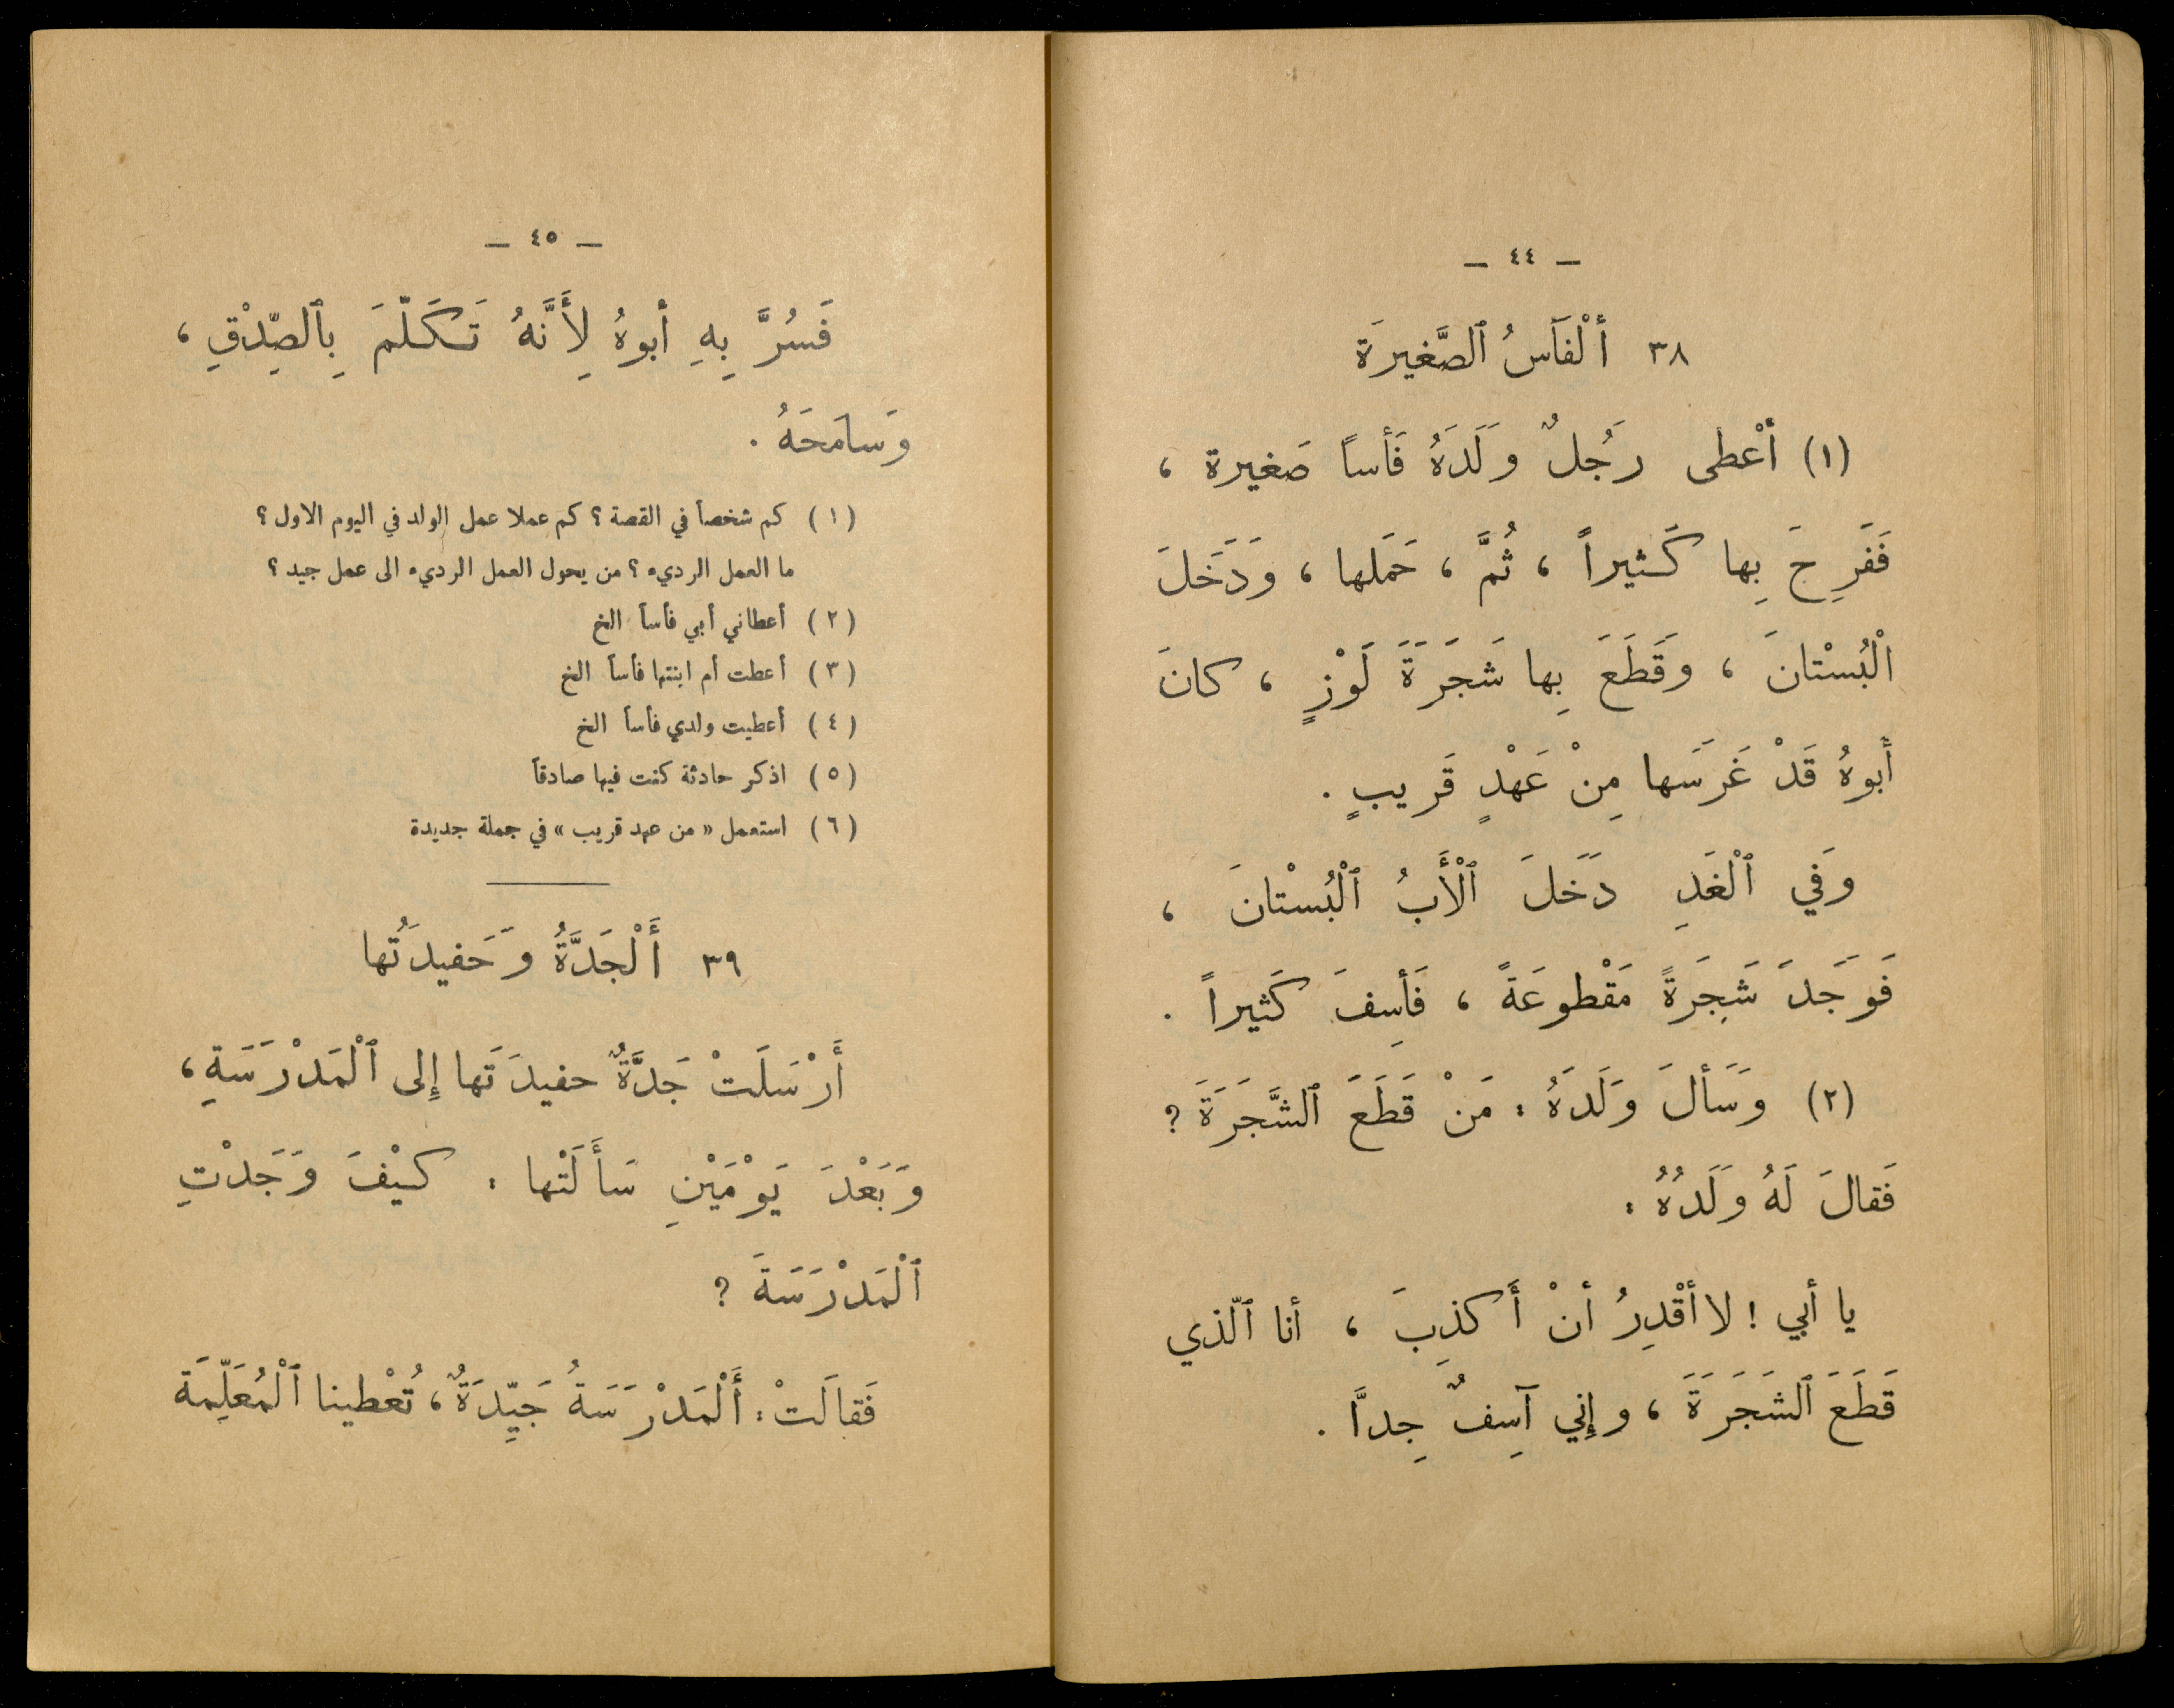 — ٤٤ —
٣٨ أَلْفَأسُ ٱلصَّغيرَة
(١) أَعْطى رَجُلٌ وَلَدَهُ فَأساً صَغيرة ،
فَفَرِحَ بِها كَثيراً ، ثُمَّ ، حَمَلها ، وَدَخَلَ
الْبُسْتانَ ، وَقَطَعَ بِها شَجَرَةَ لَوْزٍ ، كانَ
أَبوهُ قَدْ غَرَسَها مِنْ عَهْدٍ قَريبٍ .
وَفي ٱلْغَدِ دَخَلَ ٱلْأَبُ ٱلْبُسْتانَ ،
فَوَجَدَ شَجَرَةً مَقْطوعَةً ، فَأَسِفَ كَثيراً .
(٢) وَسَألَ وَلَدَهُ : مَنْ قَطَعَ ٱلشَّجَرَةَ ؟
فَقالَ لَهُ وَلَدُهُ :
يا أَبي ! لا أَقْدِرُ أَنْ أَكذِبَ ، أنا ٱلّذي
قَطَعَ ٱلشَجَرَةَ ، وإِني آسِفٌ جِدًّا .
— ٤٥ —
فَسُرَّ بِهِ أَبوهُ لِأَنَّهُ تَكَلّمَ بِٱلصِّدْقِ ،
وَسامَحَهُ .
(١) كم شخصاً في القصة ؟ كم عملا عمل الولد في اليوم الاول ؟
ما العمل الرديء ؟ من يحول العمل الرديء الى عمل جيد ؟
(٢) أعطاني أبي فأساً الخ
(٣) أعطت أم ابنتها فأساً الخ
(٤) أعطيت ولدي فأساً الخ
(٥) اذكر حادثة كنت فيها صادقاً
(٦) استعمل « من عهد قريب » في جملة جديدة
٣٩ أَلْجَدَّةُ وَحَفيدَتُها
أَرْسَلَتْ جَدَّةٌ حفيدَتَها إِلى ٱلْمَدْرَسَةِ ،
وَبَعْدَ يَوْمَيْنِ سَأَلَتْها : كيْفَ وَجَدْتِ
ٱلْمَدْرَسَةَ ؟
فَقالَتْ : أَلْمَدْرَسَةُ جَيِّدَةٌ ، تُعْطينا ٱلْمُعَلِّمَة